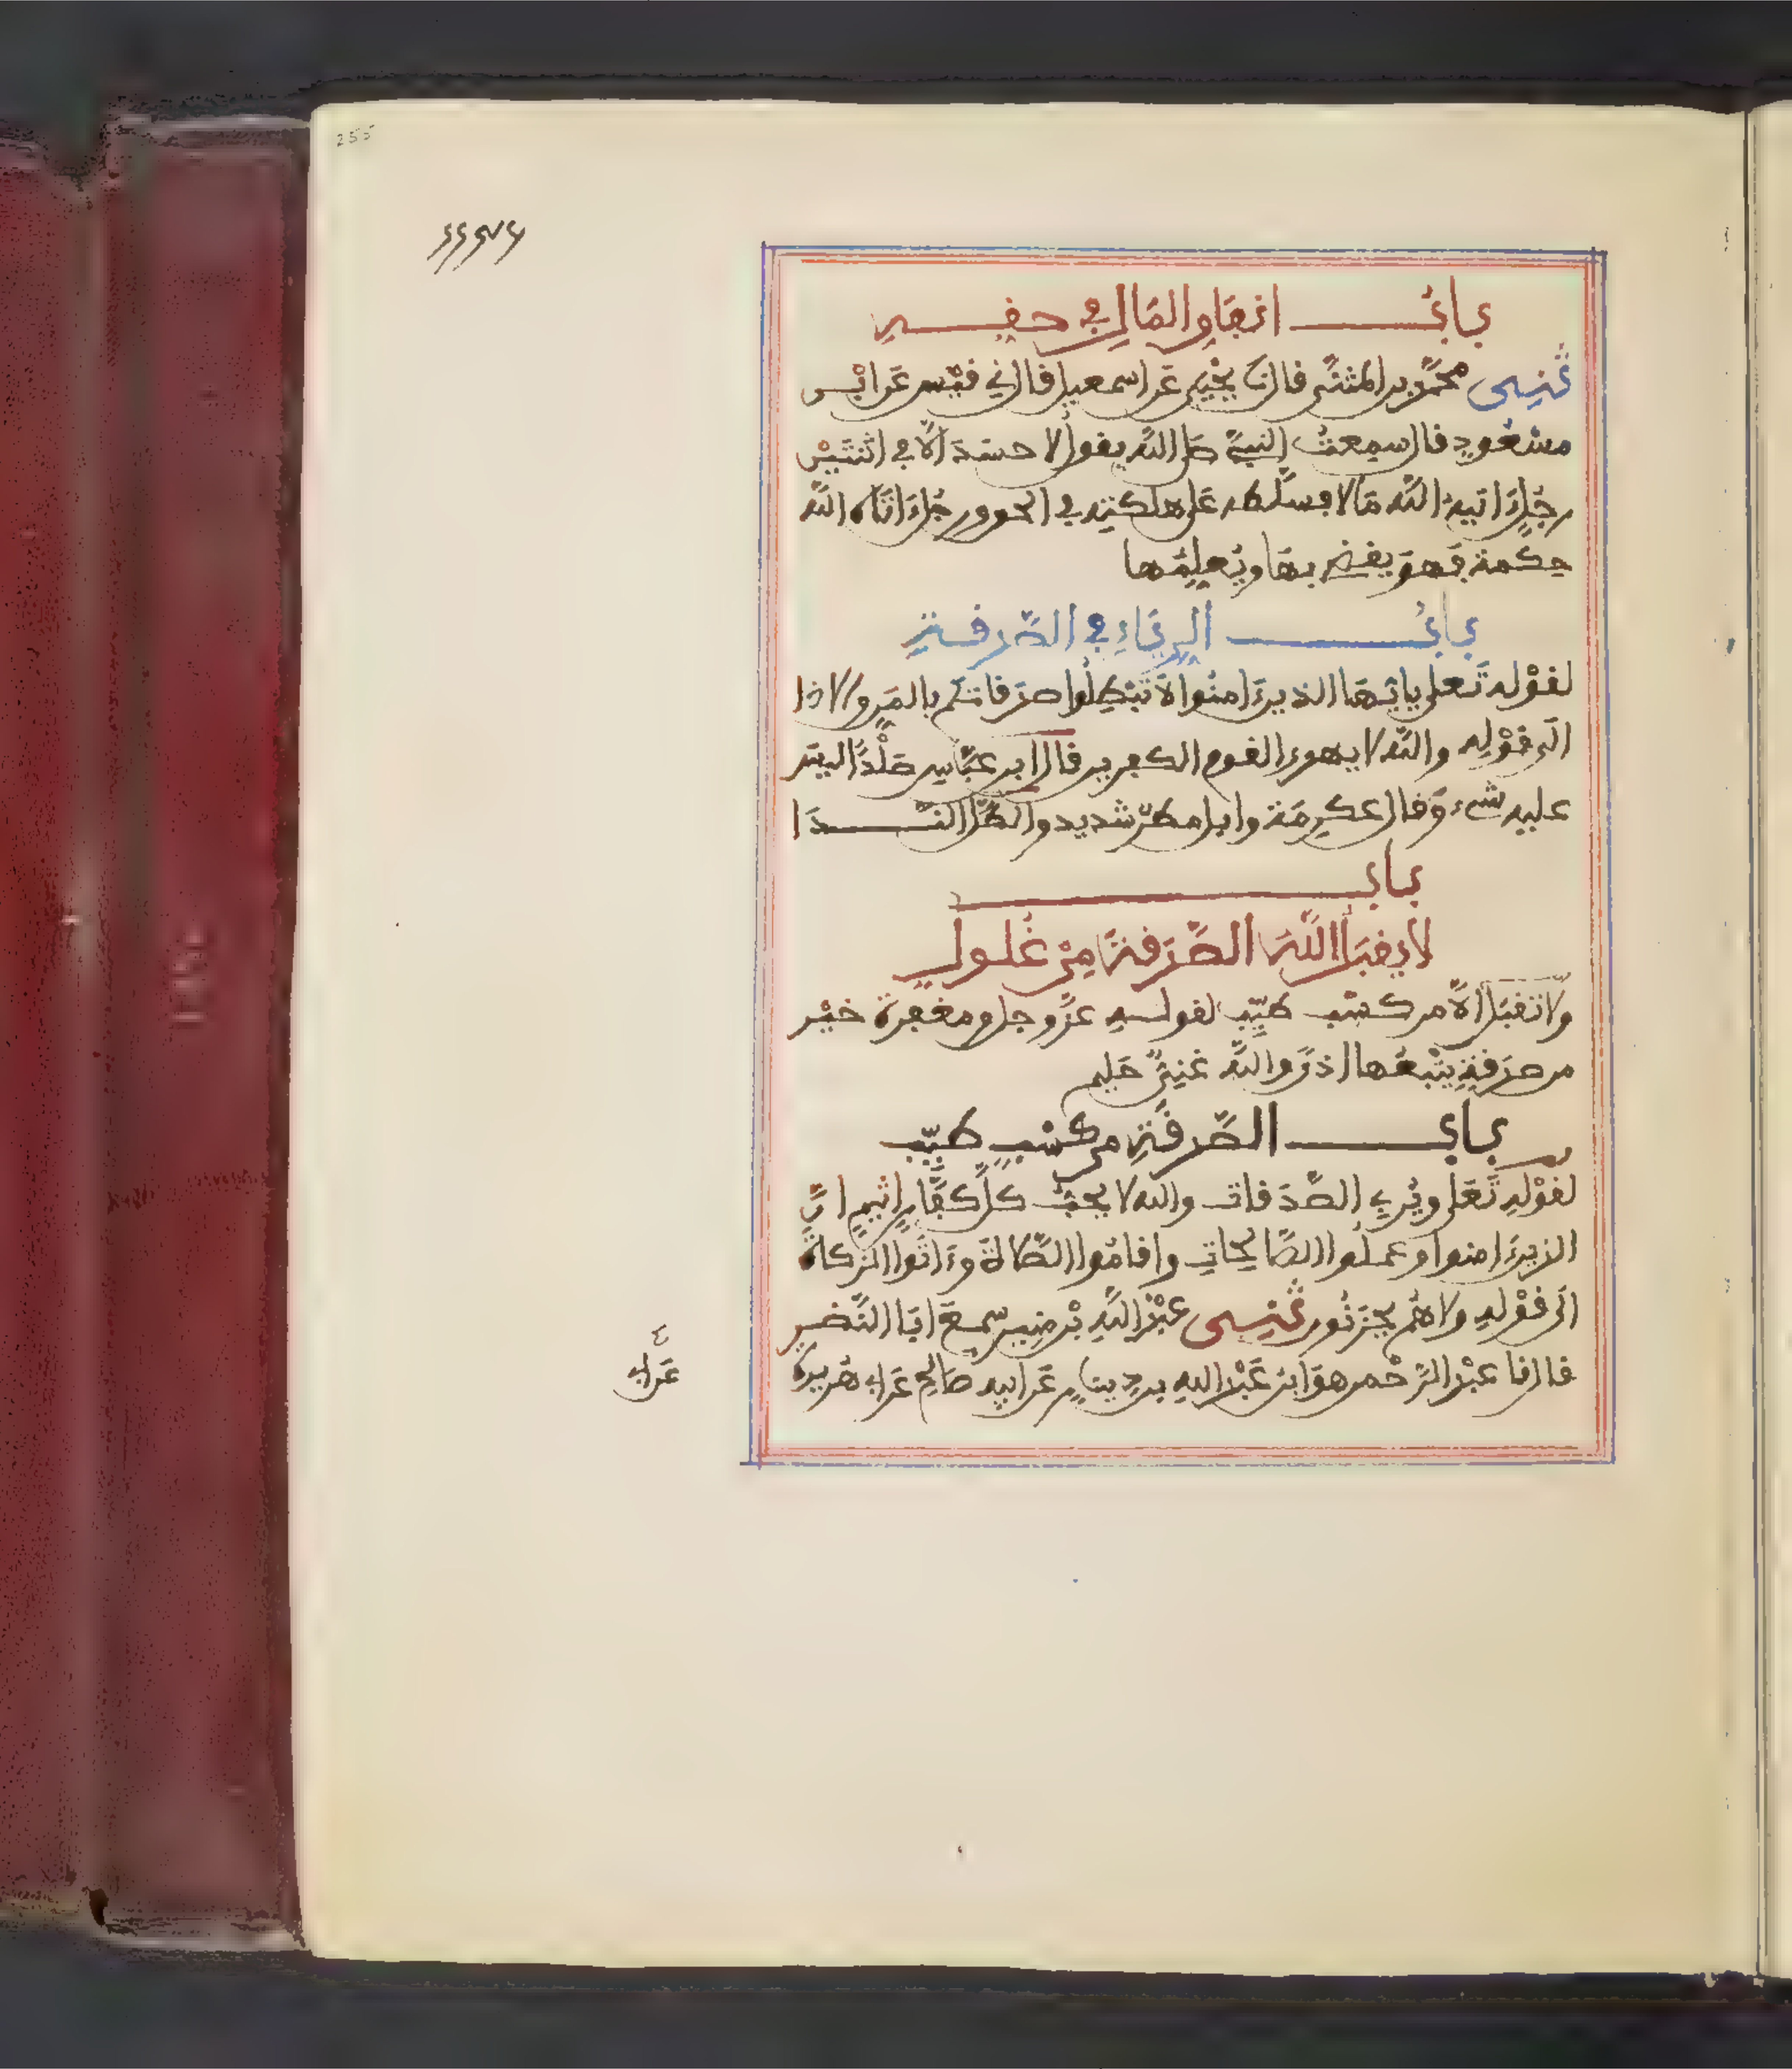 255
باب انفاق المال في حقه
ثني محمد بن المثنى قال نا يحيى عن اسمعيل قال ني قيس عن ابن
مسعود قال سمعت النبي صلى الله يقول لا حسد الا في اثنتين
رجل اتيه الله مالا فسلطه على هلكته في الحق ورجل اتاه الله
حكمة فهو يقضي بها ويعلمها
باب الرياء في الصدقة
لقوله تعلى يايها الذين ءامنوا لا تبطلوا صدقاتكم بالمن والاذا
الى قوله والله لا يهدي القوم الكفرين قال ابن عباس صلدا ليس
عليه شيء وقال عكرمة وابل مطر شديد والطل الندا
باب
لا يقبل الله الصدقة من غلول
ولا تقبل الا من كسب طيب لقوله عز وجل ومغفرة خير
من صدقة يتبعها اذى والله غني حليم
باب الصدقة من كسب طيب
لقوله تعلى ويربي الصدقات والله لا يحب كل كفار اثيم ان
الذين ءامنوا وعملوا الصالحات واقاموا الصلاة وءاتوا الزكاة
الى قوله ولا هم يحزنون ثني عبد الله بن منير سمع ابا النضر
قال نا عبد الرحمن هو ابن عبد الله بن دينار عن ابيه صالح عن ابي هريرة
عن ابي